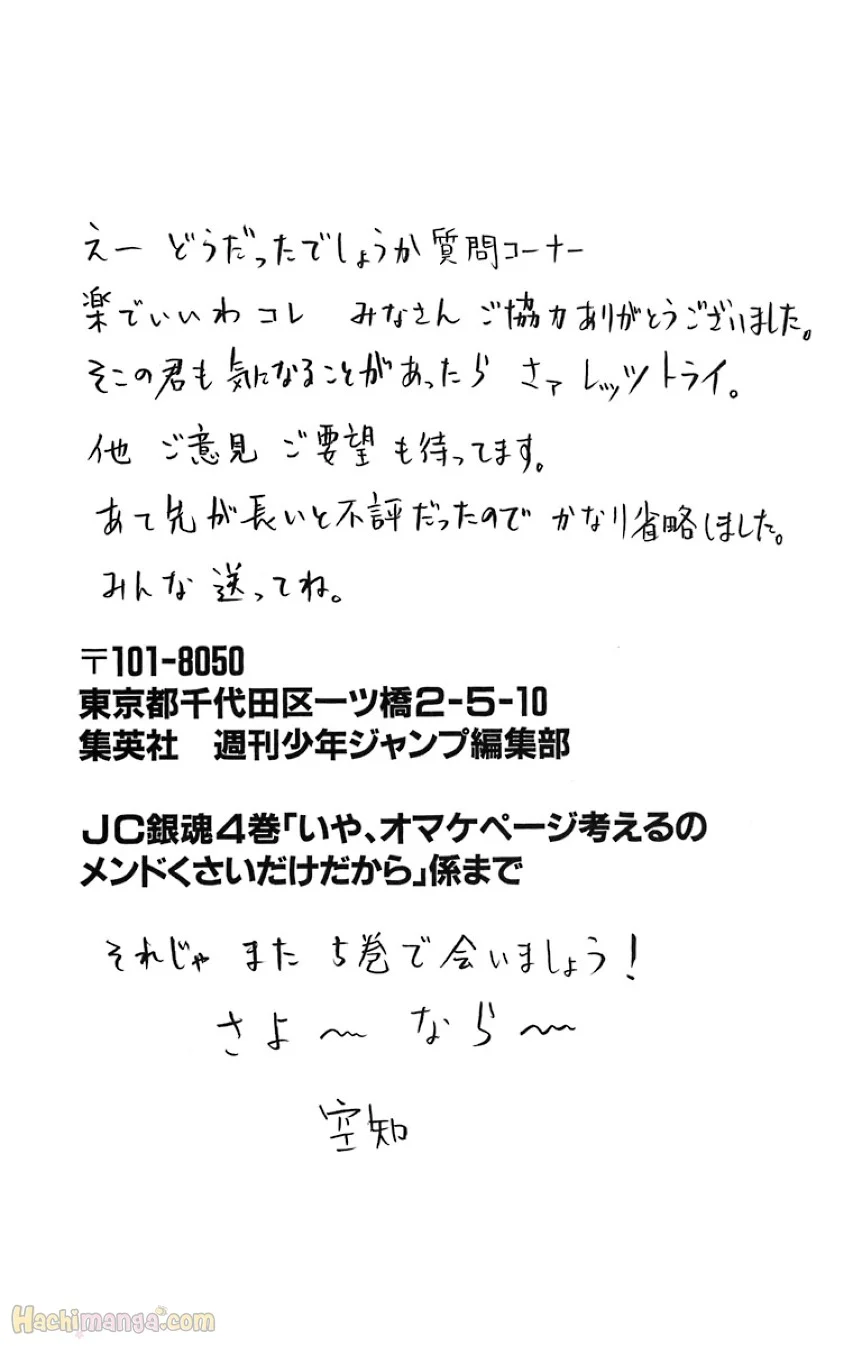 えー どうだったでしょうか質問コーナー
楽でいいわコレ みなさん ご協力ありがとうございました。
そこの君も気になることがあったら さァ レッツトライ。
他 ご意見 ご要望も待ってます。
あて先が長いと不評だったので かなり省略しました。
みんな 送ってね。
〒101-8050
東京都千代田区一ツ橋2-5-10
集英社 週刊少年ジャンプ編集部
JC銀魂4巻「いや、オマケページ考えるの
メンドくさいだけだから」係まで
それじゃ また 5巻で会いましょう!
さよ〜 なら〜
空知
Hachimanga.com!